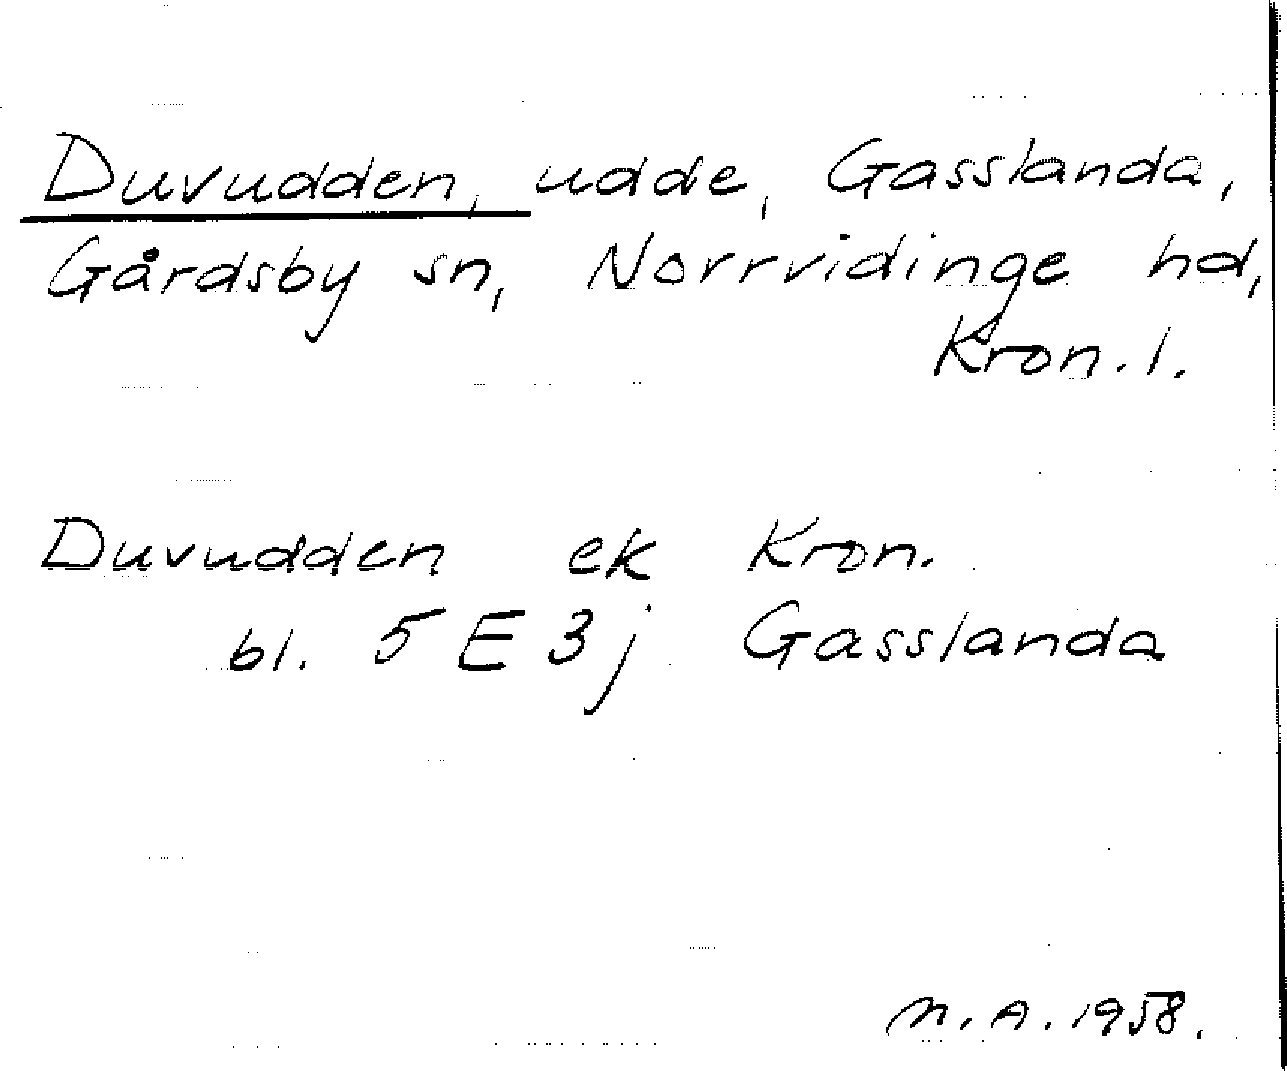 Duvudden, udde, Gasslanda,
Gårdsby sn, Norrvidinge hd,
Kron. l.
Duvudden ek Kron.
bl. 5 E 3 j Gasslanda
n. A. 1958.